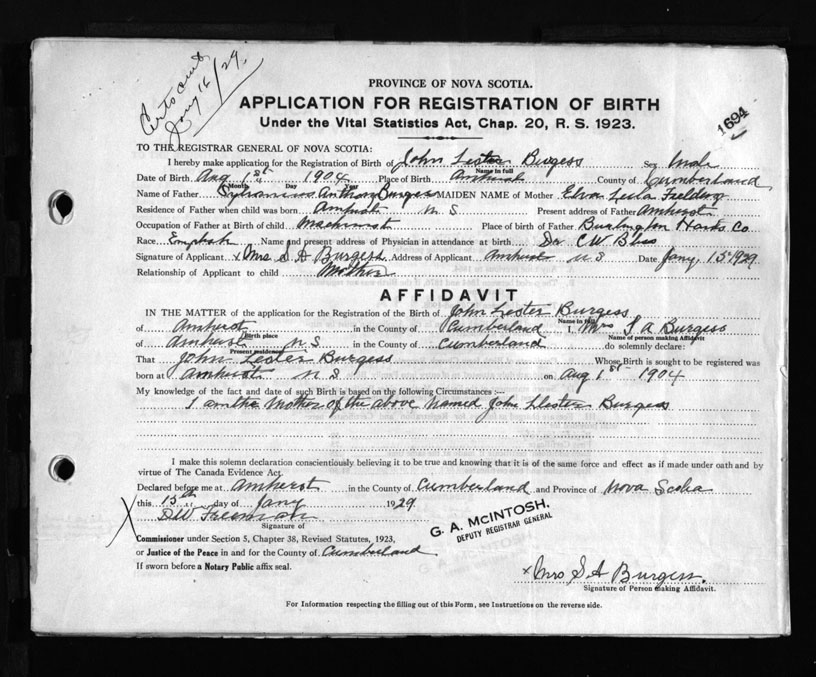 Certs out
Jany 16/29
PROVINCE OF NOVA SCOTIA.
APPLICATION FOR REGISTRATION OF BIRTH
Under the Vital Statistics Act, Chap. 20, R. S. 1923.
1694
TO THE REGISTRAR GENERAL OF NOVA SCOTIA:
I hereby make application for the Registration of Birth of John Lester Burgess Sex Male
Name in full
Date of Birth Aug 1st 1904 Place of Birth Amherst County of Cumberland
Month Day Year
Name of Father Anthony Burgess MAIDEN NAME of Mother Elva Leila Fielding
Residence of Father when child was born Amherst N S Present address of Father Amherst
Occupation of Father at Birth of child Machinist Place of birth of Father Burlington Hants Co
Race English Name and present address of Physician in attendance at birth Dr C W Bliss
Signature of Applicant x Mrs S A Burgess Address of Applicant Amherst N S Date Jany 15 1929
Relationship of Applicant to child Mother
AFFIDAVIT
IN THE MATTER of the application for the Registration of the Birth of John Lester Burgess
Name in full
of Amherst in the County of Cumberland I, Mrs S A Burgess
Birth place Name of person making Affidavit
of Amherst N S in the County of Cumberland do solemnly declare:
Present residence
That John Lester Burgess Whose Birth is sought to be registered was
born at Amherst N S on Aug 1st 1904
My knowledge of the fact and date of such Birth is based on the following Circumstances :—
I am the Mother of the above Named John Lester Burgess
I make this solemn declaration conscientiously believing it to be true and knowing that it is of the same force and effect as if made under oath and by
virtue of The Canada Evidence Act.
Declared before me at Amherst in the County of Cumberland and Province of Nova Scotia
this 15th day of Jany 1929
X DW Freeman
Signature of
G. A. McINTOSH,
DEPUTY REGISTRAR GENERAL
Commissioner under Section 5, Chapter 38, Revised Statutes, 1923,
or Justice of the Peace in and for the County of Cumberland
If sworn before a Notary Public affix seal.
x Mrs S A Burgess.
Signature of Person making Affidavit.
For Information respecting the filling out of this Form, see Instructions on the reverse side.